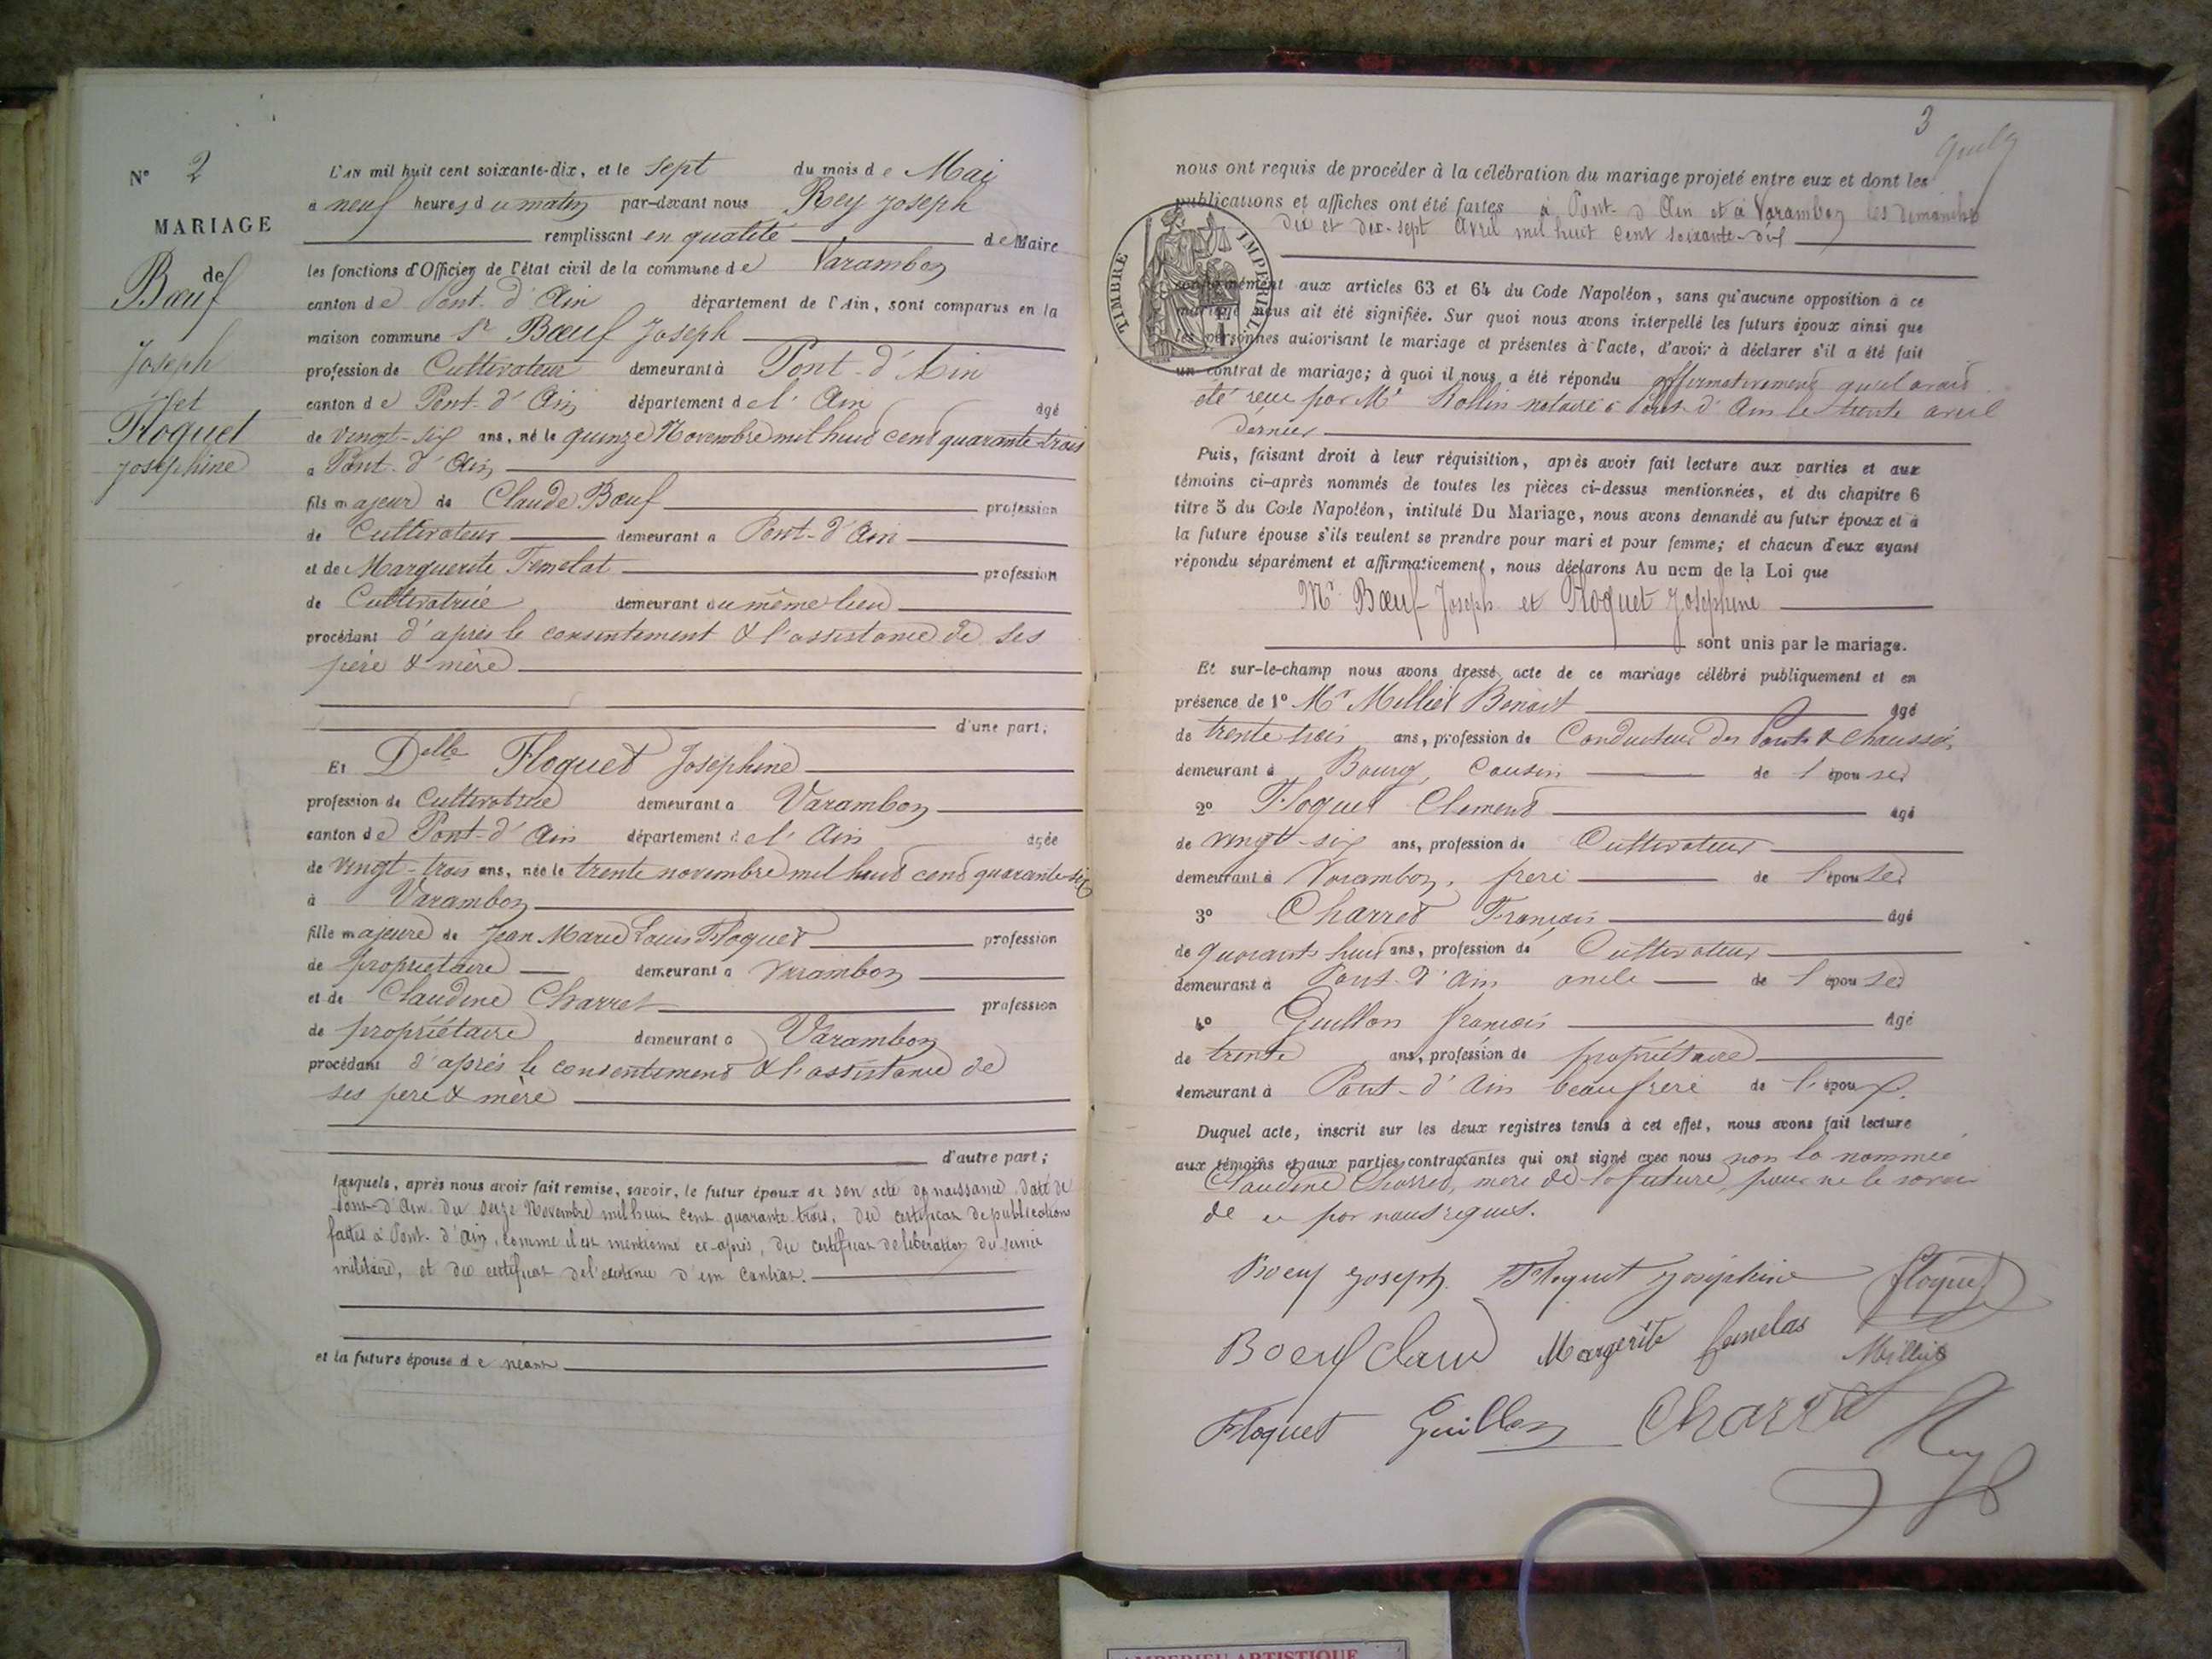 N° 2
MARIAGE
de
Bœuf
Joseph
et
Floquet
Joséphine
L'AN mil huit cent soixante-dix, et le sept du mois de Mai
à neuf heures du matin par-devant nous Rey Joseph
remplissant en qualité de Maire
les fonctions d'Officier de l'état civil de la commune de Varambon
canton de Pont-d'Ain département de l'Ain, sont comparus en la
maison commune Sr Bœuf Joseph
profession de Cultivateur demeurant à Pont-d'Ain
canton de Pont-d'Ain département de l'Ain âgé
de vingt-six ans, né le quinze Novembre mil huit cent quarante trois
à Pont-d'Ain
fils majeur de Claude Bœuf profession
de Cultivateur demeurant à Pont-d'Ain
et de Marguerite Femelat profession
de Cultivatrice demeurant au même lieu
procédant d'après le consentement & l'assistance de ses
père & mère
d'une part;
Et Delle Floquet Joséphine
profession de Cultivatrice demeurant à Varambon
canton de Pont-d'Ain département de l'Ain âgée
de vingt-trois ans, née le trente novembre mil huit cent quarante six
à Varambon
fille majeure de Jean Marie Louis Floquet profession
de propriétaire demeurant à Varambon
et de Claudine Charret profession
de propriétaire demeurant à Varambon
procédant d'après le consentement & l'assistance de
ses père & mère
d'autre part;
lesquels, après nous avoir fait remise, savoir, le futur époux de son acte de naissance daté de
Pont-d'Ain du seize Novembre mil huit cent quarante trois, du certificat de publication
faites à Pont-d'Ain, comme il est mentionné ci-après, du certificat de libération du service
militaire, et du certificat de l'existence d'un contrat.
et la future épouse de néant
3
nous ont requis de procéder à la célébration du mariage projeté entre eux et dont les
publications et affiches ont été faites à Pont-d'Ain et à Varambon les dimanches
dix et dix-sept avril mil huit cent soixante-dix
TIMBRE IMPERIAL
conformément aux articles 63 et 64 du Code Napoléon, sans qu'aucune opposition à ce
mariage nous ait été signifiée. Sur quoi nous avons interpellé les futurs époux ainsi que
les personnes autorisant le mariage et présentes à l'acte, d'avoir à déclarer s'il a été fait
un contrat de mariage; à quoi il nous a été répondu affirmativement qu'il avait
été reçu par Me Rollin notaire à Pont-d'Ain le trente avril
dernier
Puis, faisant droit à leur réquisition, après avoir fait lecture aux parties et aux
témoins ci-après nommés de toutes les pièces ci-dessus mentionnées, et du chapitre 6
titre 5 du Code Napoléon, intitulé Du Mariage, nous avons demandé au futur époux et à
la future épouse s'ils veulent se prendre pour mari et pour femme; et chacun d'eux ayant
répondu séparément et affirmativement, nous déclarons Au nom de la Loi que
Mr Bœuf Joseph et Floquet Joséphine
sont unis par le mariage.
Et sur-le-champ nous avons dressé acte de ce mariage célébré publiquement et en
présence de 1° Mr Milliet Benoit âgé
de trente trois ans, profession de Conducteur des Ponts & Chaussées
demeurant à Bourg, cousin de l'épouse
2° Floquet Clement âgé
de vingt-six ans, profession de Cultivateur
demeurant à Varambon, frère de l'épouse
3° Charret François âgé
de quarante huit ans, profession de Cultivateur
demeurant à Pont-d'Ain oncle de l'épouse
4° Guillon françois âgé
de trente ans, profession de propriétaire
demeurant à Pont-d'Ain beaufrère de l'époux.
Duquel acte, inscrit sur les deux registres tenus à cet effet, nous avons fait lecture
aux témoins et aux parties contractantes qui ont signé avec nous non la nommée
Claudine Charret, mère de la future, pour ne le savoir
de ce par nous requis.
Boeuf Joseph Floquet Joséphine Floquet
Boeuf Claud Margerite femelas Milliet
Floquet Guillon Charret Rey
AMBERIEU ARTISTIQUE